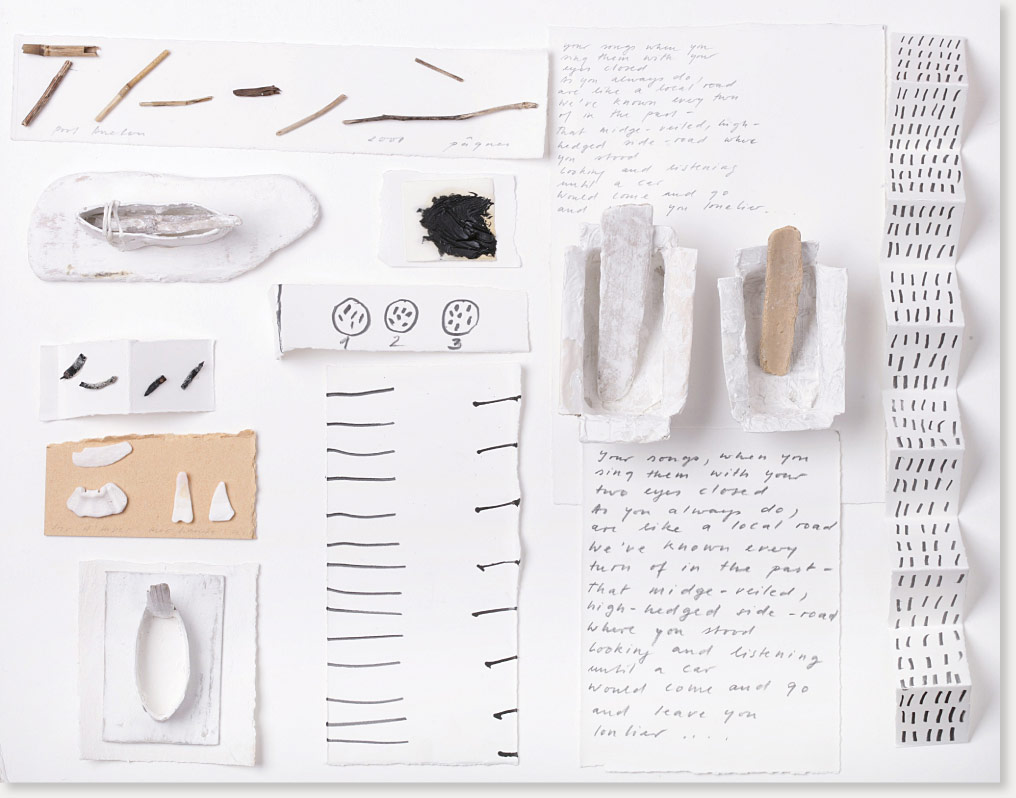 your songs when you
sing them with your
eyes closed
As you always do,
are like a local road
We've known every turn
of in the past -
That midge-veiled, high-
hedged side-road where
you stood
Looking and listening
until a car
Would come and go
and you lonelier....
1 2 3
Your songs, when you
sing them with your
two eyes closed
As you always do,
are like a local road
We've known every
turn of in the past -
That midge-veiled,
high-hedged side-road
Where you stood
Looking and listening
until a car
Would come and go
and leave you
lonlier ....